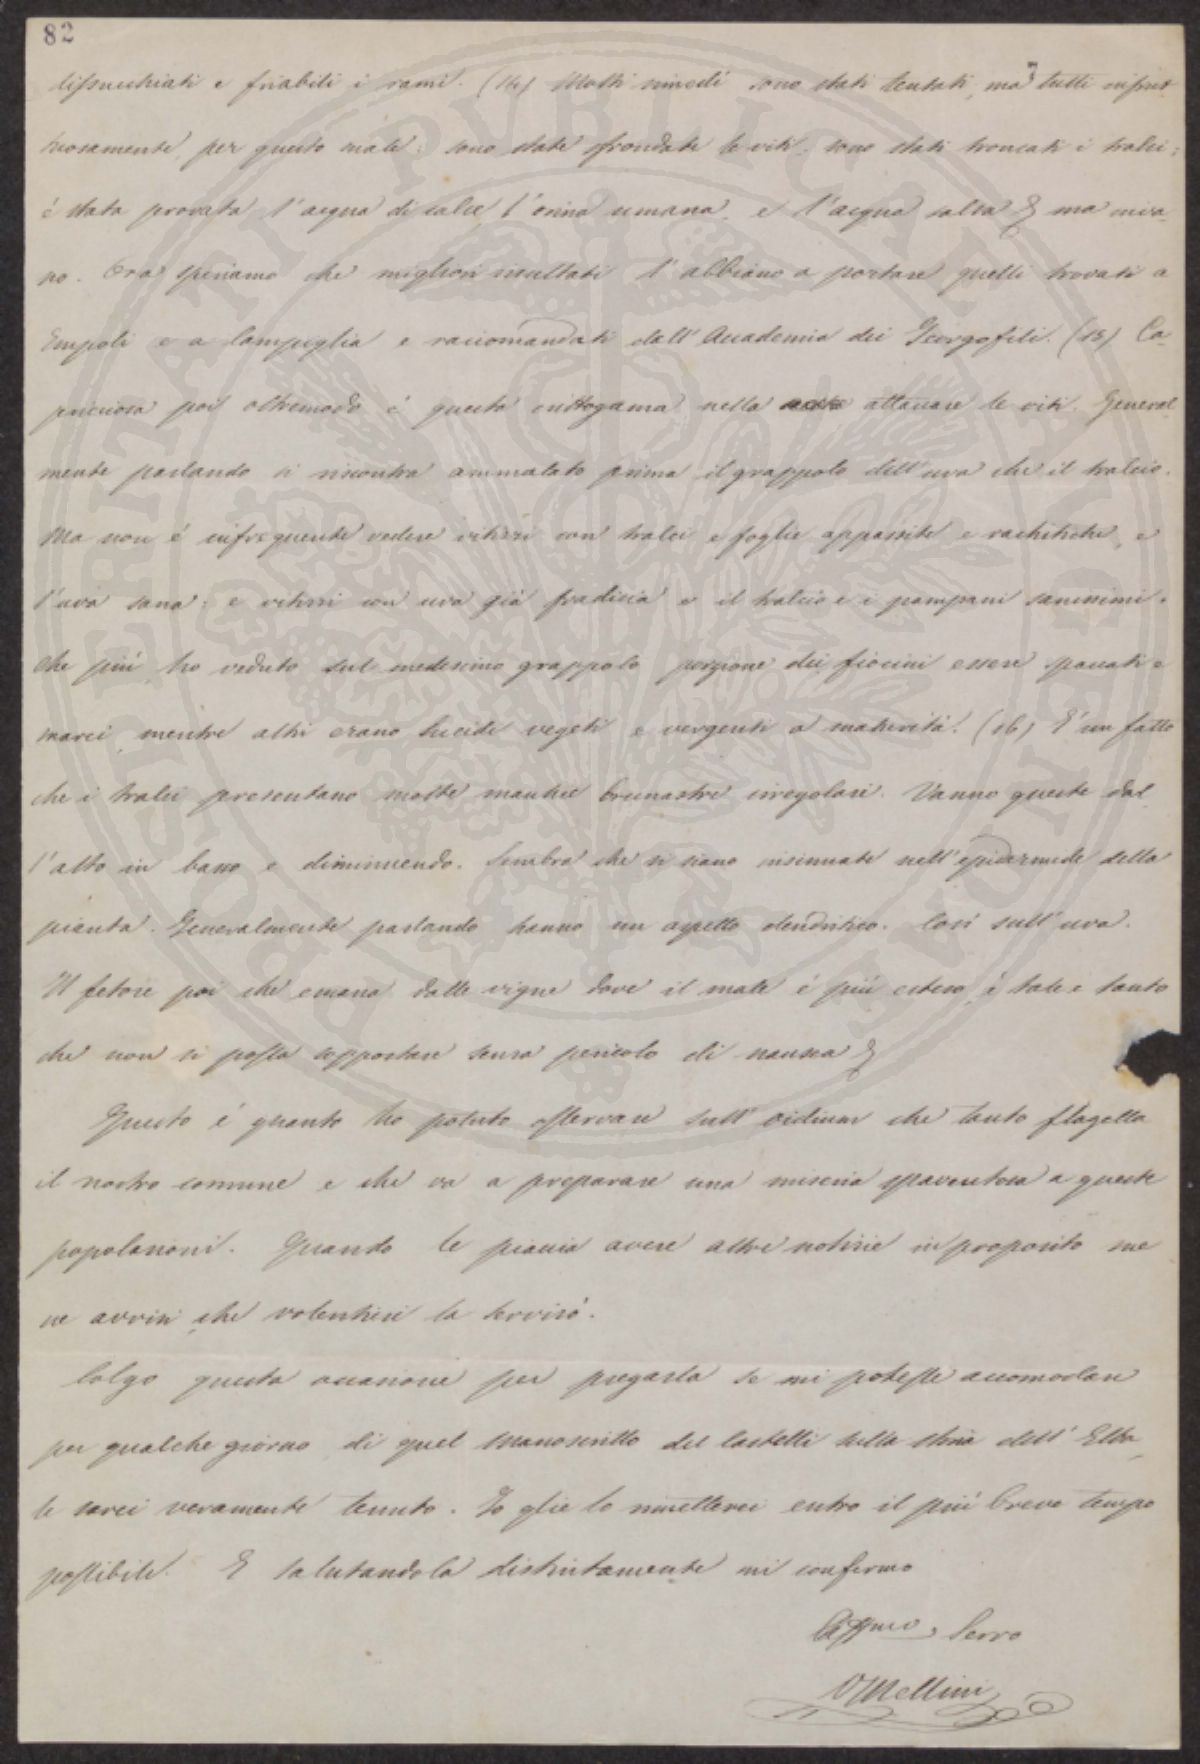 82
dissucchiati e friabili i rami. (14) Molti rimedi sono stati tentati, ma tutti infrut
tuosamente, per questo male: sono state sfrondate le viti, sono stati troncati i tralci:
è stata provata l'acqua di calce, l'orina umana, e l'acqua salsa & ma inva-
no. Ora speriamo che migliori risultati l'abbiano a portare quelli trovati a
Empoli e a Campiglia e raccomandati dall'Accademia dei Georgofili. (15) Ca-
pricciosa poi oltremodo è questa crittogama nella attaccare le viti. General-
mente parlando si riscontra ammalato prima il grappolo dell'uva che il tralcio.
Ma non è infrequente vedere vitizzi con tralci e foglie appassite e rachitiche, e
l'uva sana: e vitizzi con uva già fradicia e il tralcio e i pampani sanissimi.
Che più, ho veduto sul medesimo grappolo porzione dei fiocini essere spaccati e
marci, mentre altri erano lucidi vegeti e vergenti a maturità. (16) È un fatto
che i tralci presentano molte macchie brunastre irregolari. Vanno queste dal-
l'alto in basso e diminuendo. Sembra che si siano insinuate nell'epidermide della
pianta. Generalmente parlando hanno un aspetto dendritico. Così sull'uva.
Il fetore poi che emana dalle vigne dove il male è più esteso, è tale e tanto
che non si possa sopportare senza pericolo di nausea &
Questo è quanto ho potuto osservare sull'oidium che tanto flagella
il nostro comune e che va a preparare una miseria spaventosa a queste
popolazioni. Quando le piaccia avere altre notizie in proposito me
ne avvisi che volentieri la servirò.
Colgo questa occasione per pregarla se mi potesse accomodare
per qualche giorno di quel Manoscritto del Castelli sulla storia dell'Elba,
le sarei veramente tenuto. Io glie lo rimetterei entro il più breve tempo
possibile. E salutandola distintamente mi confermo
Affmo. Servo
V Mellini